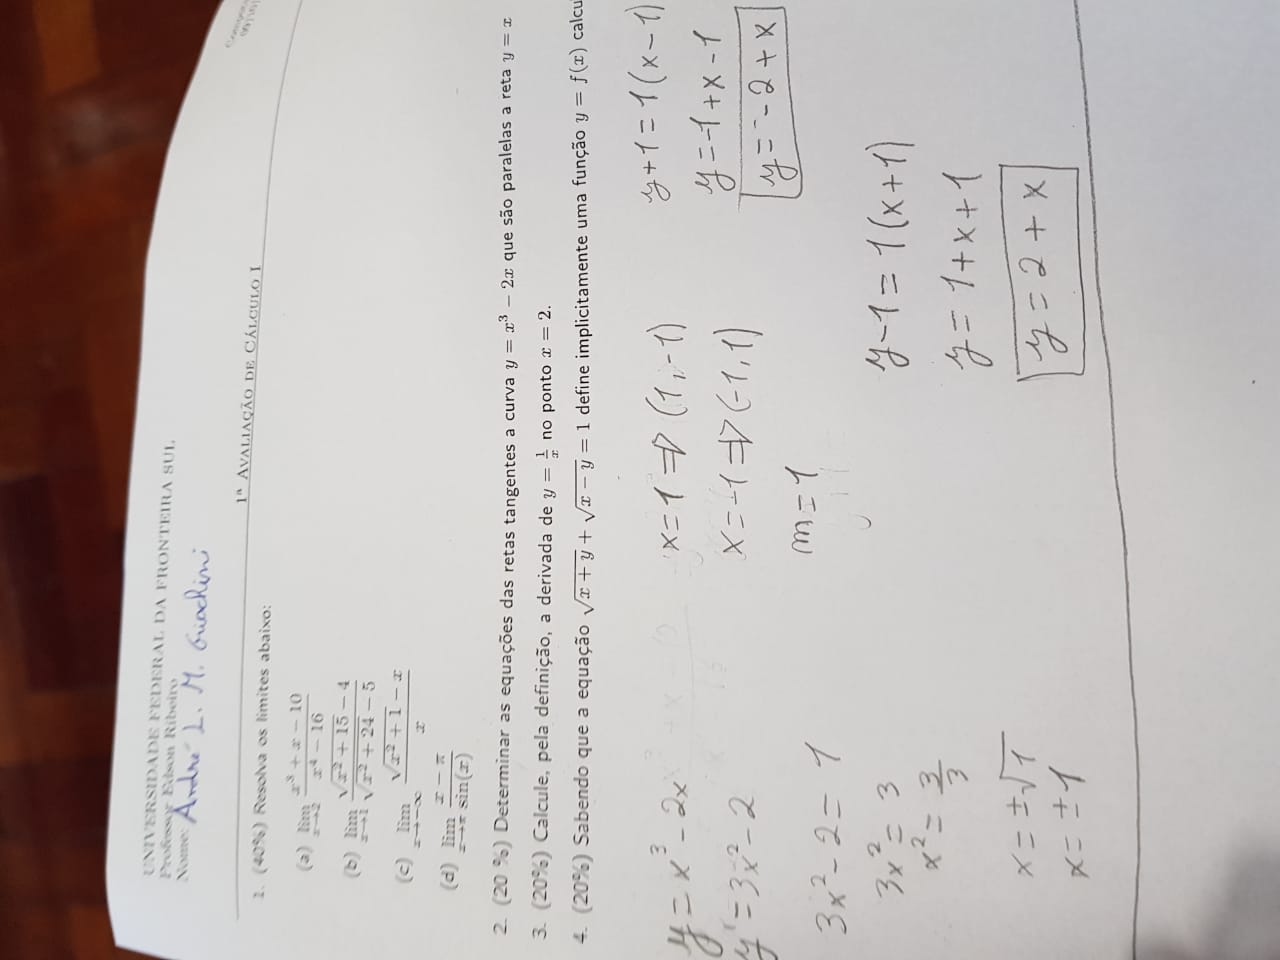 UNIVERSIDADE FEDERAL DA FRONTEIRA SUL
Professor Edson Ribeiro
Nome: André L. M.
1ª AVALIAÇÃO DE CÁLCULO I
1. (40%) Resolva os limites abaixo:
(a) lim x→2 (x³ + x − 10)/(x⁴ − 16)
(b) lim x→1 (√(x² + 15) − 4)/(√(x² + 24) − 5)
(c) lim x→−∞ (√(x² + 1) − x)/x
(d) lim x→π (x − π)/sin(x)
2. (20 %) Determinar as equações das retas tangentes a curva y = x³ − 2x que são paralelas a reta y = x
3. (20%) Calcule, pela definição, a derivada de y = 1/x no ponto x = 2.
4. (20%) Sabendo que a equação √(x + y) + √(x − y) = 1 define implicitamente uma função y = f(x)
y = x³ − 2x
y' = 3x² − 2
3x² − 2 = 1
3x² = 3
x² = 3/3
x = ±√1
x = ±1
x = 1 ⇒ (1, −1)
x = −1 ⇒ (−1, 1)
m = 1
y + 1 = 1(x − 1)
y = −1 + x − 1
y = −2 + x
y − 1 = 1(x + 1)
y = 1 + x + 1
y = 2 + x